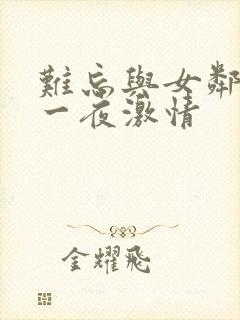 難忘與女鄰
一夜激情
金耀飛